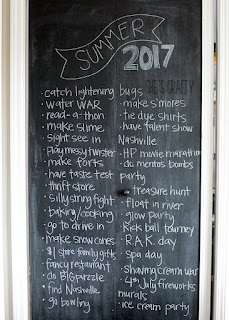 SUMMER
2017
SHE IS CRAFTY
· catch lightening bugs
· water WAR
· read-a-thon
· make slime
· sight see in Nashville
· play messy twister
· make forts
· have taste test party
· thrift store
· silly string fight
· baking/cooking
· go to drive in
· make snow cones
· $1 store family gifts
· fancy restaurant
· do BIG puzzle
· find Nashville murals
· go bowling
· make s'mores
· tie dye shirts
· have talent show
· HP movie marathon
· do mentos bombs
· treasure hunt
· float in river
· glow party
· Kick ball tourney
· R.A.K. day
· spa day
· Shaving cream war
· 4th July fireworks
· ice cream party